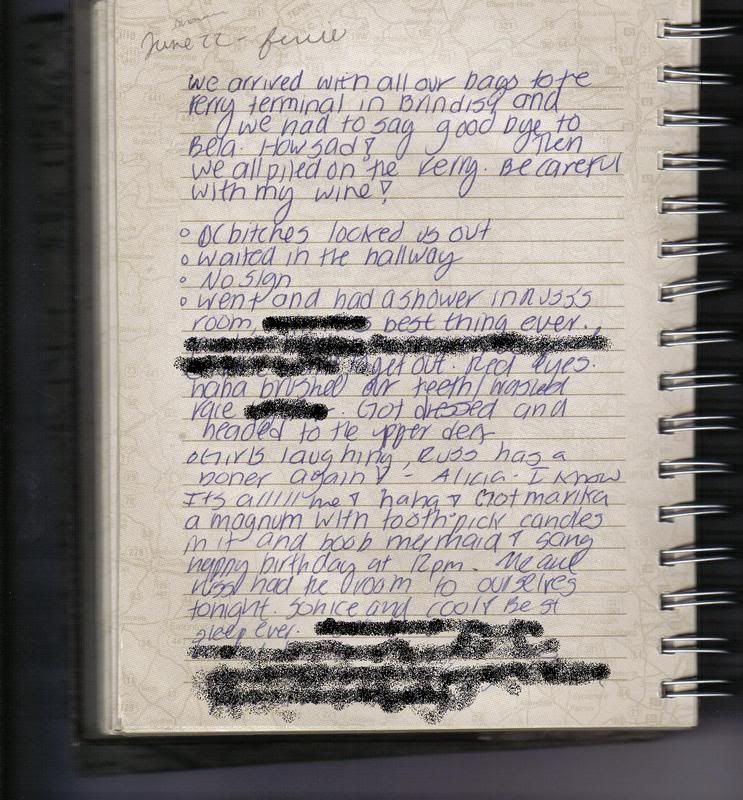 June 22 -
we arrived with all our bags to the
ferry terminal in Brindisi and
we had to say good bye to
Bela. How sad! Then
we all piled on the ferry. Be careful
with my wine!
DC bitches locked us out
waited in the hallway
No sign
went and had a shower in Russ's
room, best thing ever.
get out. Red eyes.
haha brushed our teeth/washed
face. Got dressed and
headed to the upper deck
Girls laughing, Russ has a
boner again! - Alicia - I know
Its all me! haha! Got marika
a magnum with tooth-pick candles
in it and boob mermaid & sang
happy birthday at 12pm. Me and
russ had the room to ourselves
tonight. So nice and cool! Best
sleep ever.